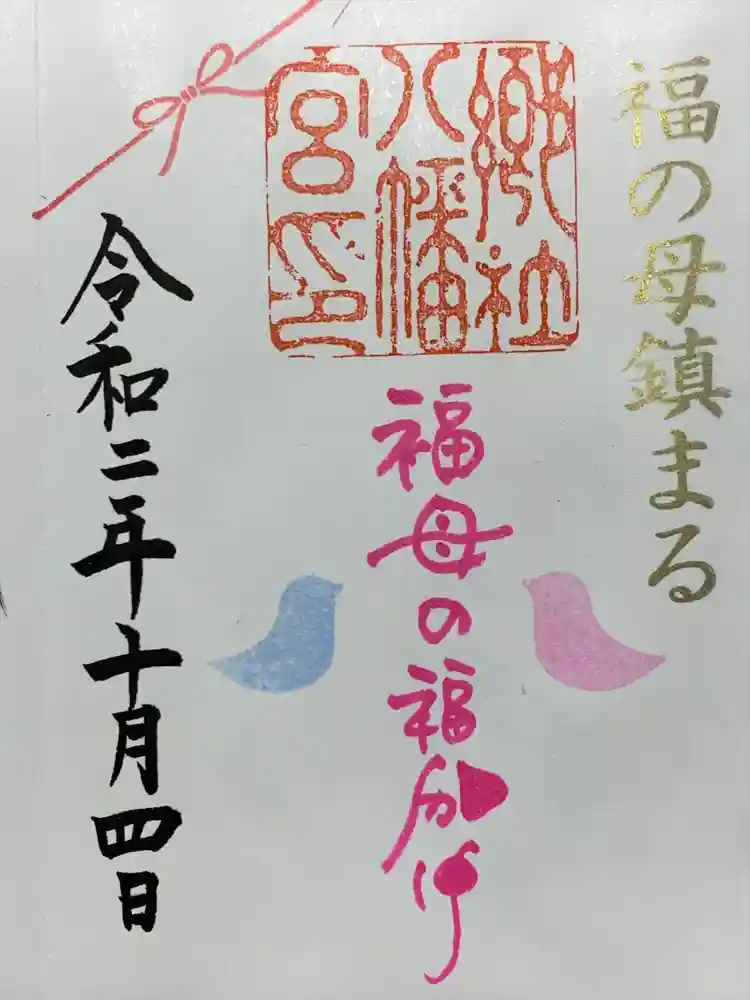 福の母鎮まる
郷社
八幡
宮印
福母の福かけ
令和二年十月四日